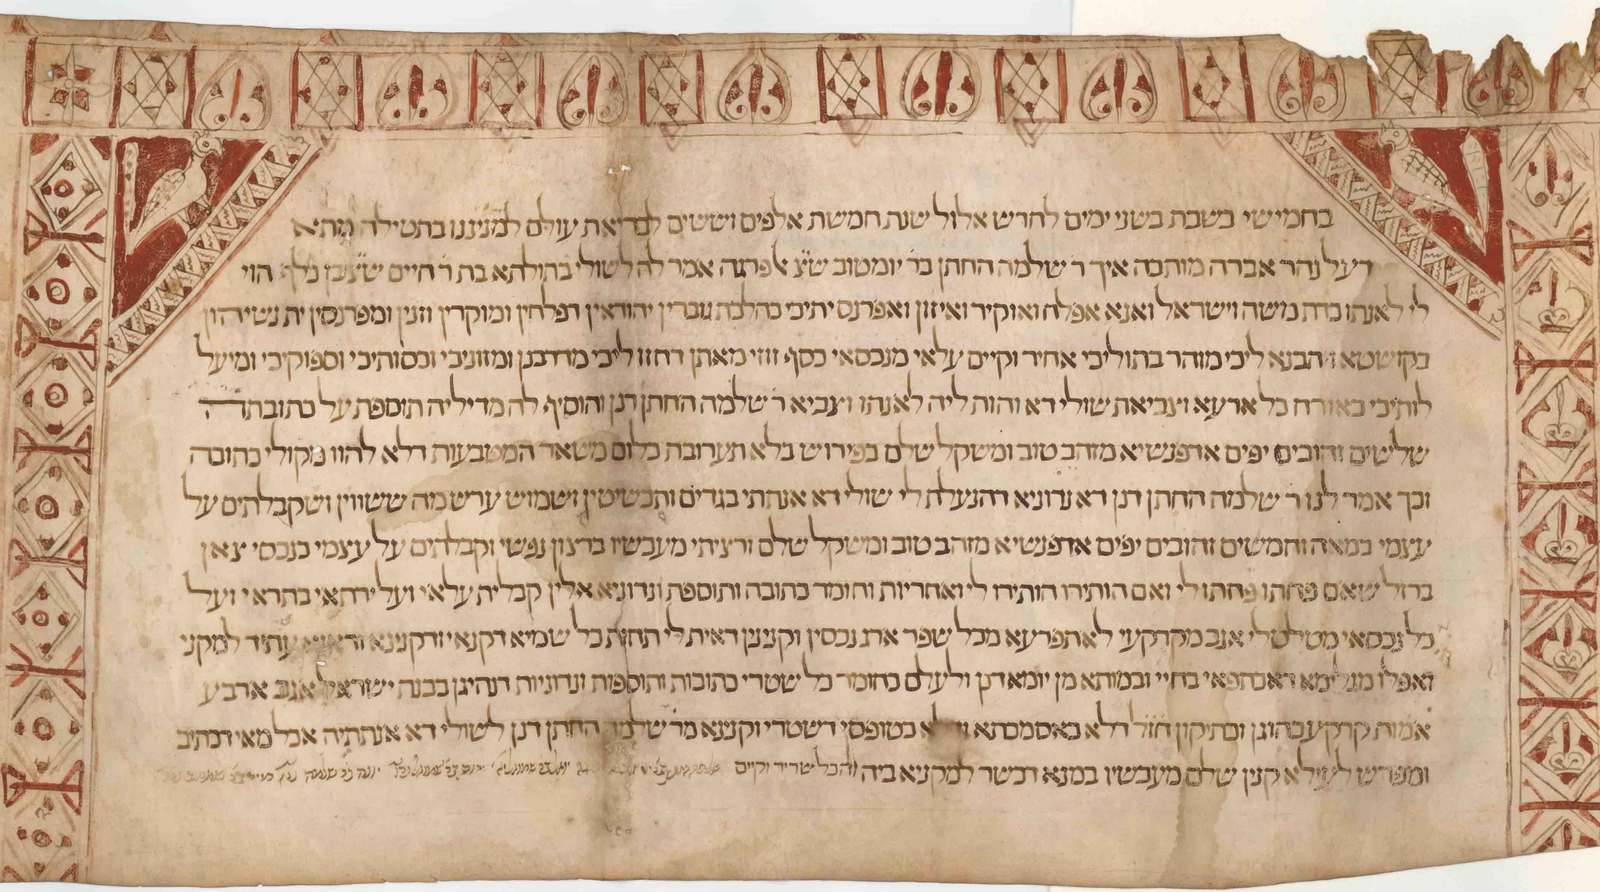 בחמישי בשבת בשני ימים לחדש אלול שנת חמשת אלפים וששים לבריאת עולם למניננו בתטילה מתא
דעל נהר אברה מותבה איך ר שלמה החתן בר יומטוב ש״צ אפתנה אמר לה לשולי בתולתא בת ר חיים הוי
לי לאנתו כדת משה וישראל ואנא אפלח ואוקיר ואיזון ואפרנס יתיכי כהלכת גוברין יהודאין דפלחין ומוקרין וזנין ומפרנסין ית נשיהון
בקושטא ויהבנא ליכי מוהר בתוליכי אחיד וקיים עלאי מנכסאי כסף זוזי מאתן דחזו ליכי מדרבנן ומזוניכי וכסותיכי וספוקיכי ומיעל
לותיכי כאורח כל ארעא וצביאת שולי דא והות ליה לאנתו וצביא ר שלמה החתן דנן והוסיף לה מדיליה תוספת על כתובתה
שלשים זהובים יפים אדפנשיא מזהב טוב ומשקל שלם בפירוש בלא תערובת כלום משאר המטבעות דלא להוו מקולי כתובה
וכך אמר לנו ר שלמה החתן דנן דא נדוניא דהנעלת לי שולי דא אנתתי בגדים ותכשיטין ושמוש ערש מה ששווין ושקבלתים על
עצמי במאה וחמשים זהובים יפים אדפנשיא מזהב טוב ומשקל שלם ורציתי מעכשיו ברצון נפשי וקבלתים על עצמי כנכסי צאן
ברזל שאם פחתו פחתו לי ואם הותירו הותירו לי ואחריות וחומר כתובה ותוספת ונדוניא אלין קבלית עלאי ועל ירתאי בתראי ועל
כל נכסאי מטלטלי אגב מקרקעי לאתפרעא מכל שפר ארג נכסין וקנינין דאית לי תחות כל שמיא דקנאי ודקנינא עתיד למקני
ואפלו מגלימא דאכתפאי בחיי ובמותא מן יומא דנן ולעלם כחומר כל שטרי כתובות ותוספות ונדוניות דנהיגן בבנת ישראל אגב ארבע
אמות קרקע כהוגן וכתיקון חז״ל דלא כאסמכתא ודלא כטופסי דשטרי וקנינא מר שלמה החתן דנן לשולי דא אנתתיה אכל מאי דכתיב
ומפרש לעילא קנין שלם מעכשיו במנא דכשר למקניא ביה והכל שריר וקיים